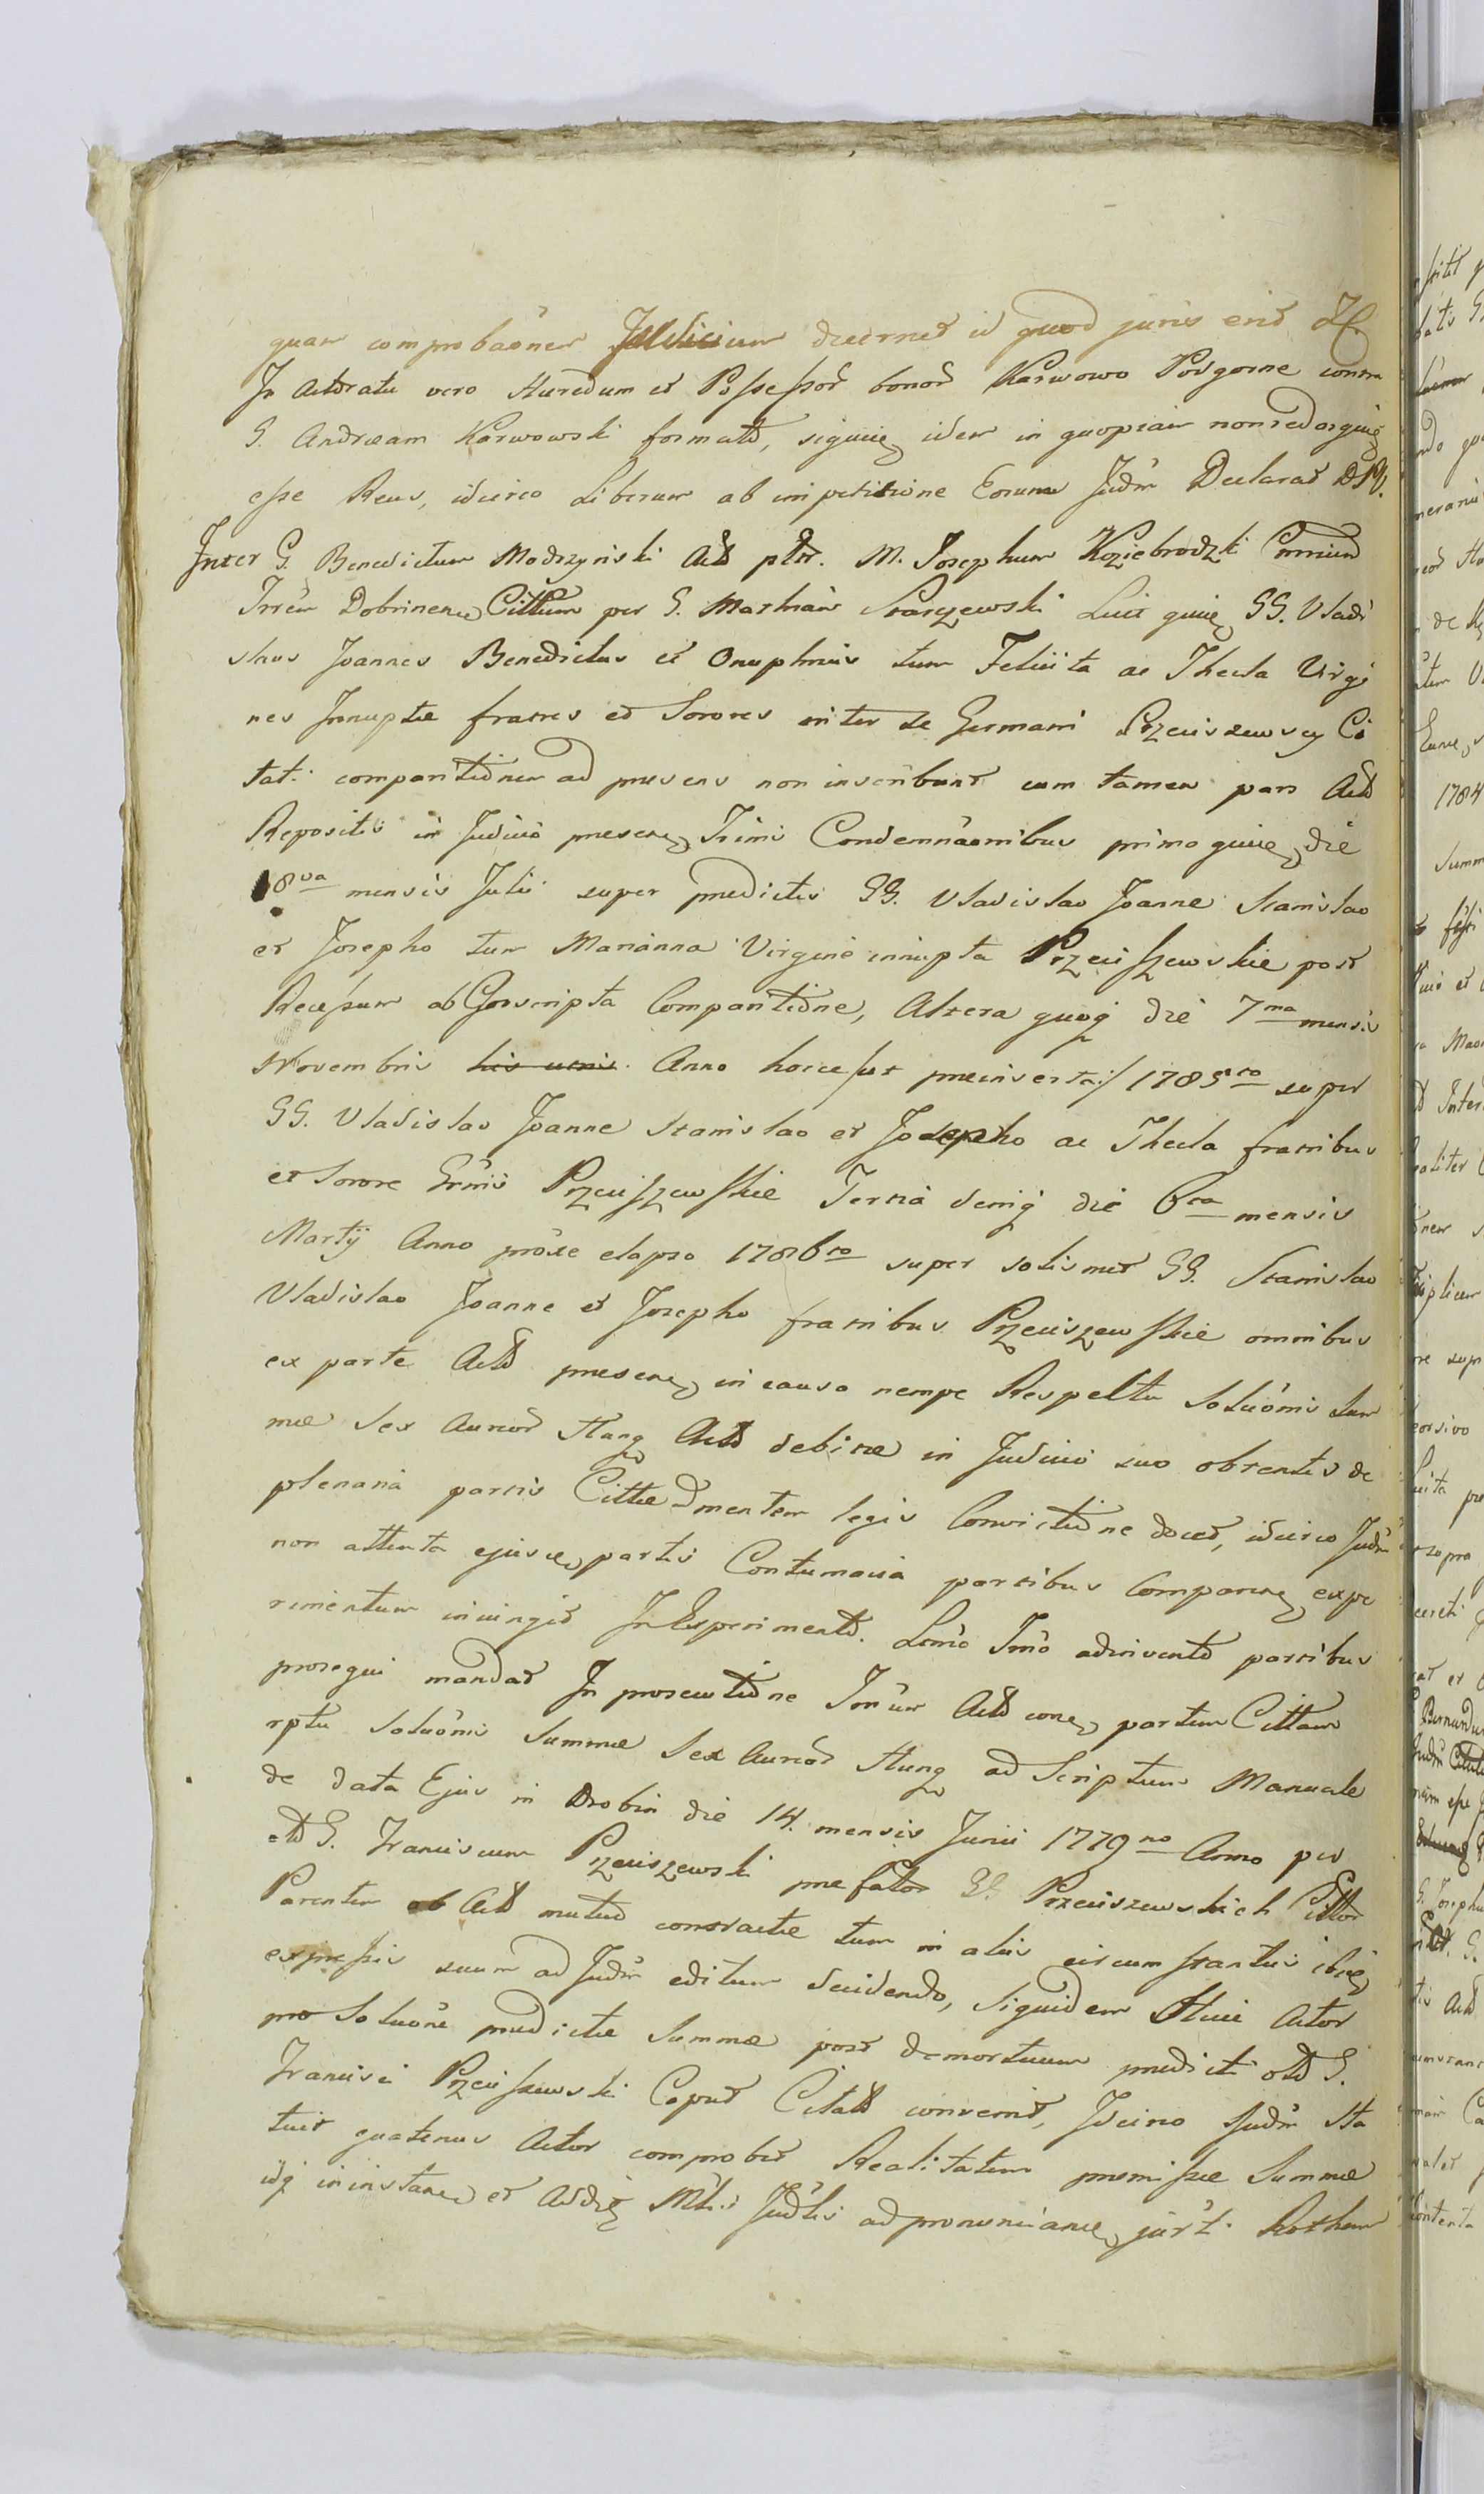 quam comprobaõnem Judicium decernet id quod juris erit &c
In Actoratu vero Haeredum et Possessor bonor Karwowo Podgorne contra
G. Andream Karwowski format, siquie idem in quopiam non redargui
esse Reus, idcirco Liberum ab impetitione Eorum Judm Declarat DPV.
Inter G. Benedictum Modrzynski Act pltr. M. Josephum Koziebrodzki
Trrem Dobrinen Cittum per G. Mathiam Starczewski Licet quie GG. Vladi
slaus Joannes Benedictus et Onuphrius tum Felicita ac Thecla Virgi
nes Innuptae fratres et Sorores inter se Germani Przeciszewscy Ci
tati comparitiõnem ad praesens non inscribunt cum tamen pars Act
Repositis in Judicio praesen Trinis Condemnaõnibus primo quie die
18va mensis Julii super praedictis GG. Vladislao Joanne Stanislao
et Josepho tum Marianna Virgine innupta Przeciszewskie post
Recessum ab Conscripta Comparitiõne, Altera quoq die 7ma mensis
Novembris Anno hocce sut praeinserta :/ 1785to super
GG. Vladislao Joanne Stanislao et Josepho ac Thecla fratribus
et Sorore Grnis Przeciszewskie Tertia deniq die 6ta mensis
Martij Anno prõxe elapso 1786to super solismet GG. Stanislao
Vladislao Joanne et Josepho fratribus Przeciszewskie omnibus
ex parte Act praesen in causa nempe Respectu Soluõnis Sum
mae Sex Aureor Hung Act debitae in Judicio suo obtentis de
plenaria partis Cittae mentem legis Convictiõne docet, idcirco Judm
non attenta ejusce partis Contumacia partibus Comparen expe
rimentum iniungit In Experiment. Lmo Tmo adinvent partibus
prosequi mandat In prosecutiõne Tmum Act cone partem Cittam
rptu Soluõnis Summae Sex Aureor Hung ad Scriptum Manuale
de data Ejus in Drobin die 14. mensis Junii 1779no Anno per
olt G. Franciscum Przeciszewski praefator GG. Przeciszewskich Cittor
Parentem ab Act mutuo contractae tum in aliis circumstantiis ibid
expressis suum ad Judm editum decidendo, Siquidem Hicce Actor
pro Soluõne praedictae Summae post demortuum praedicti olt G.
Francisci Przeciszewski Caput Citatt convenit, Idcirco Judm Sta
tuit quatenus Actor comprobet Realitatem praemissae Summae
idq in instan et Mtis Judlis ad pronuncian jurti Rotham